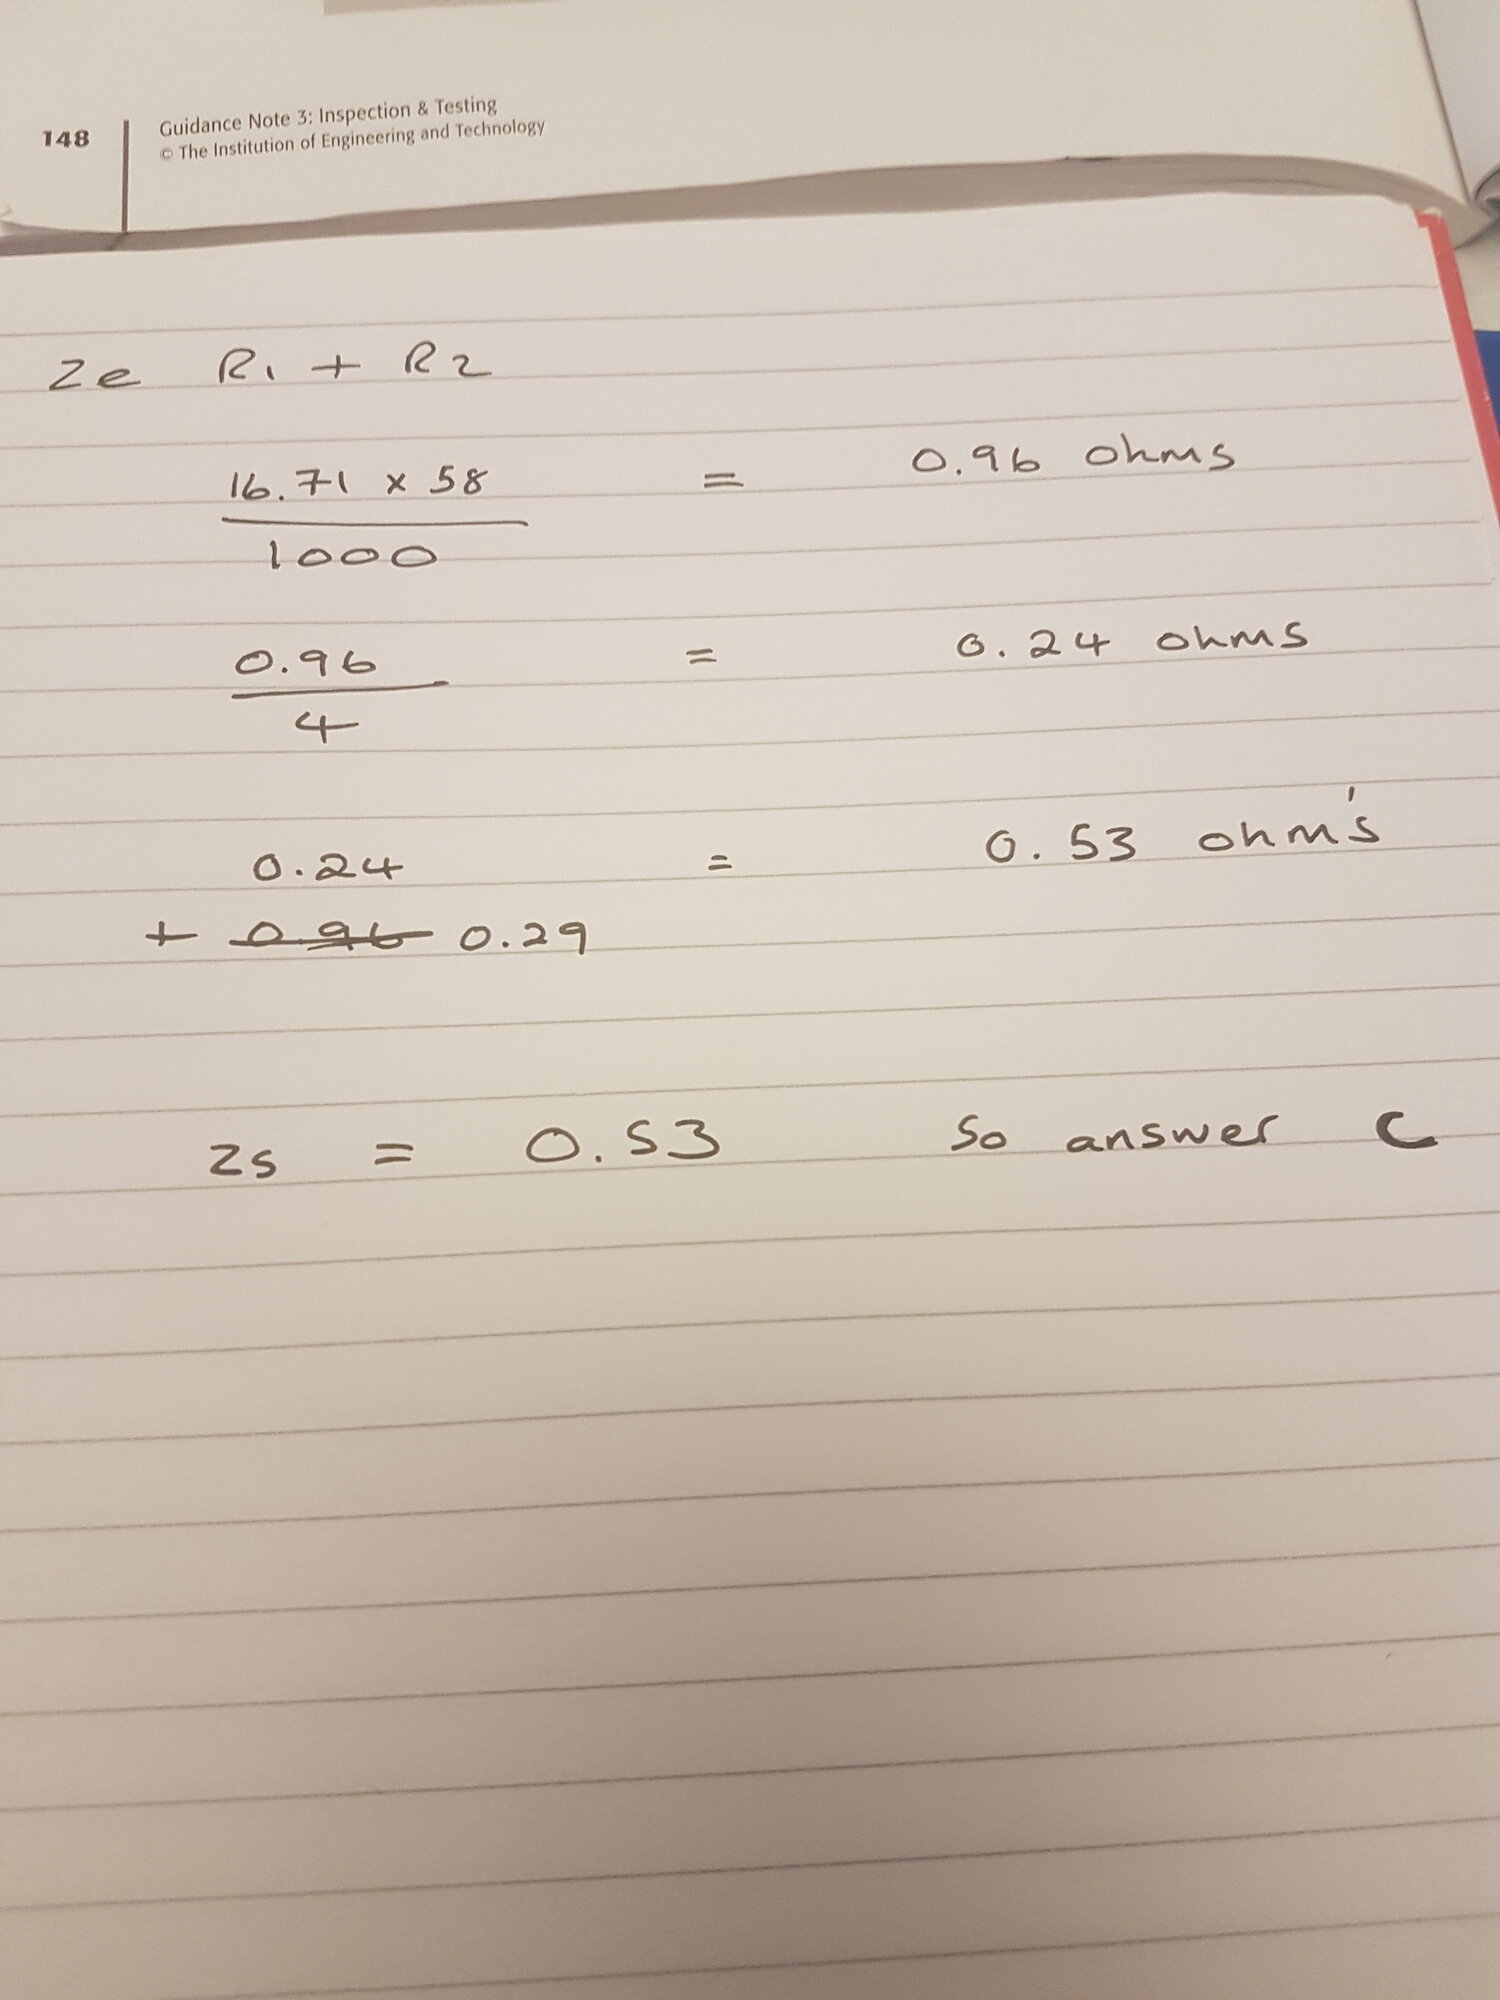 148
Guidance Note 3: Inspection & Testing
© The Institution of Engineering and Technology
Ze R1 + R2
16.71 x 58 = 0.96 ohms
1000
0.96 = 0.24 ohms
4
0.24 = 0.53 ohm's
+ 0.96 0.29
Zs = 0.53 So answer C